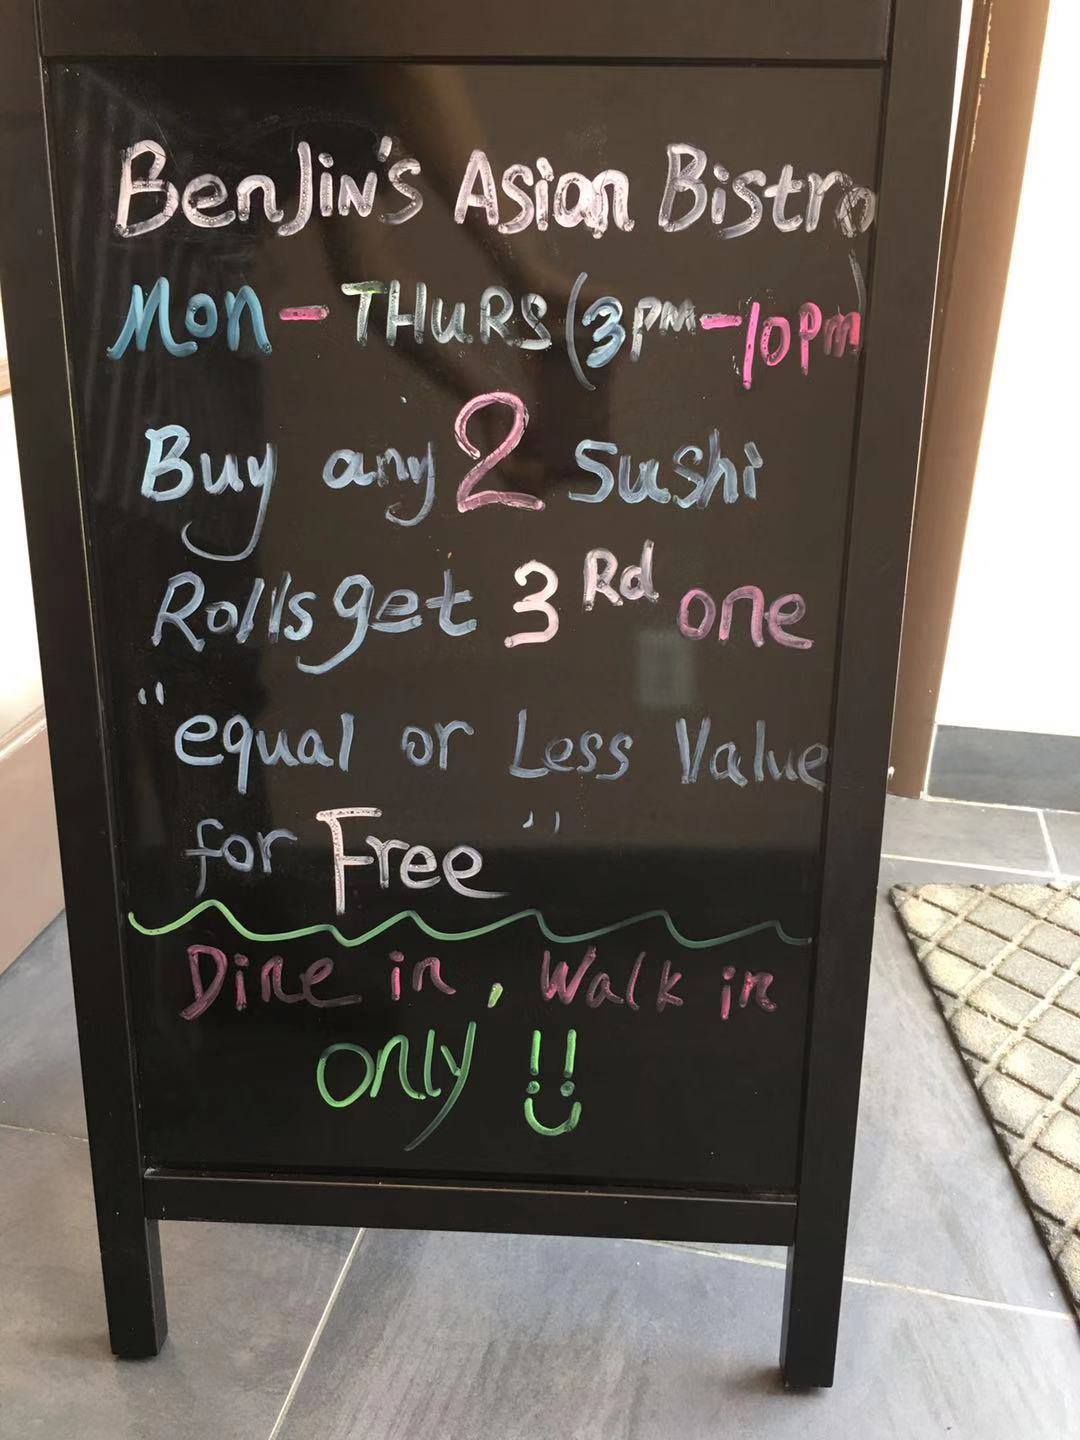 BenJin's Asian Bistro
Mon-THURS (3pm-10pm)
Buy any 2 Sushi
Rolls get 3Rd one
"equal or Less Value
for Free"
Dine in, Walk in
only !!